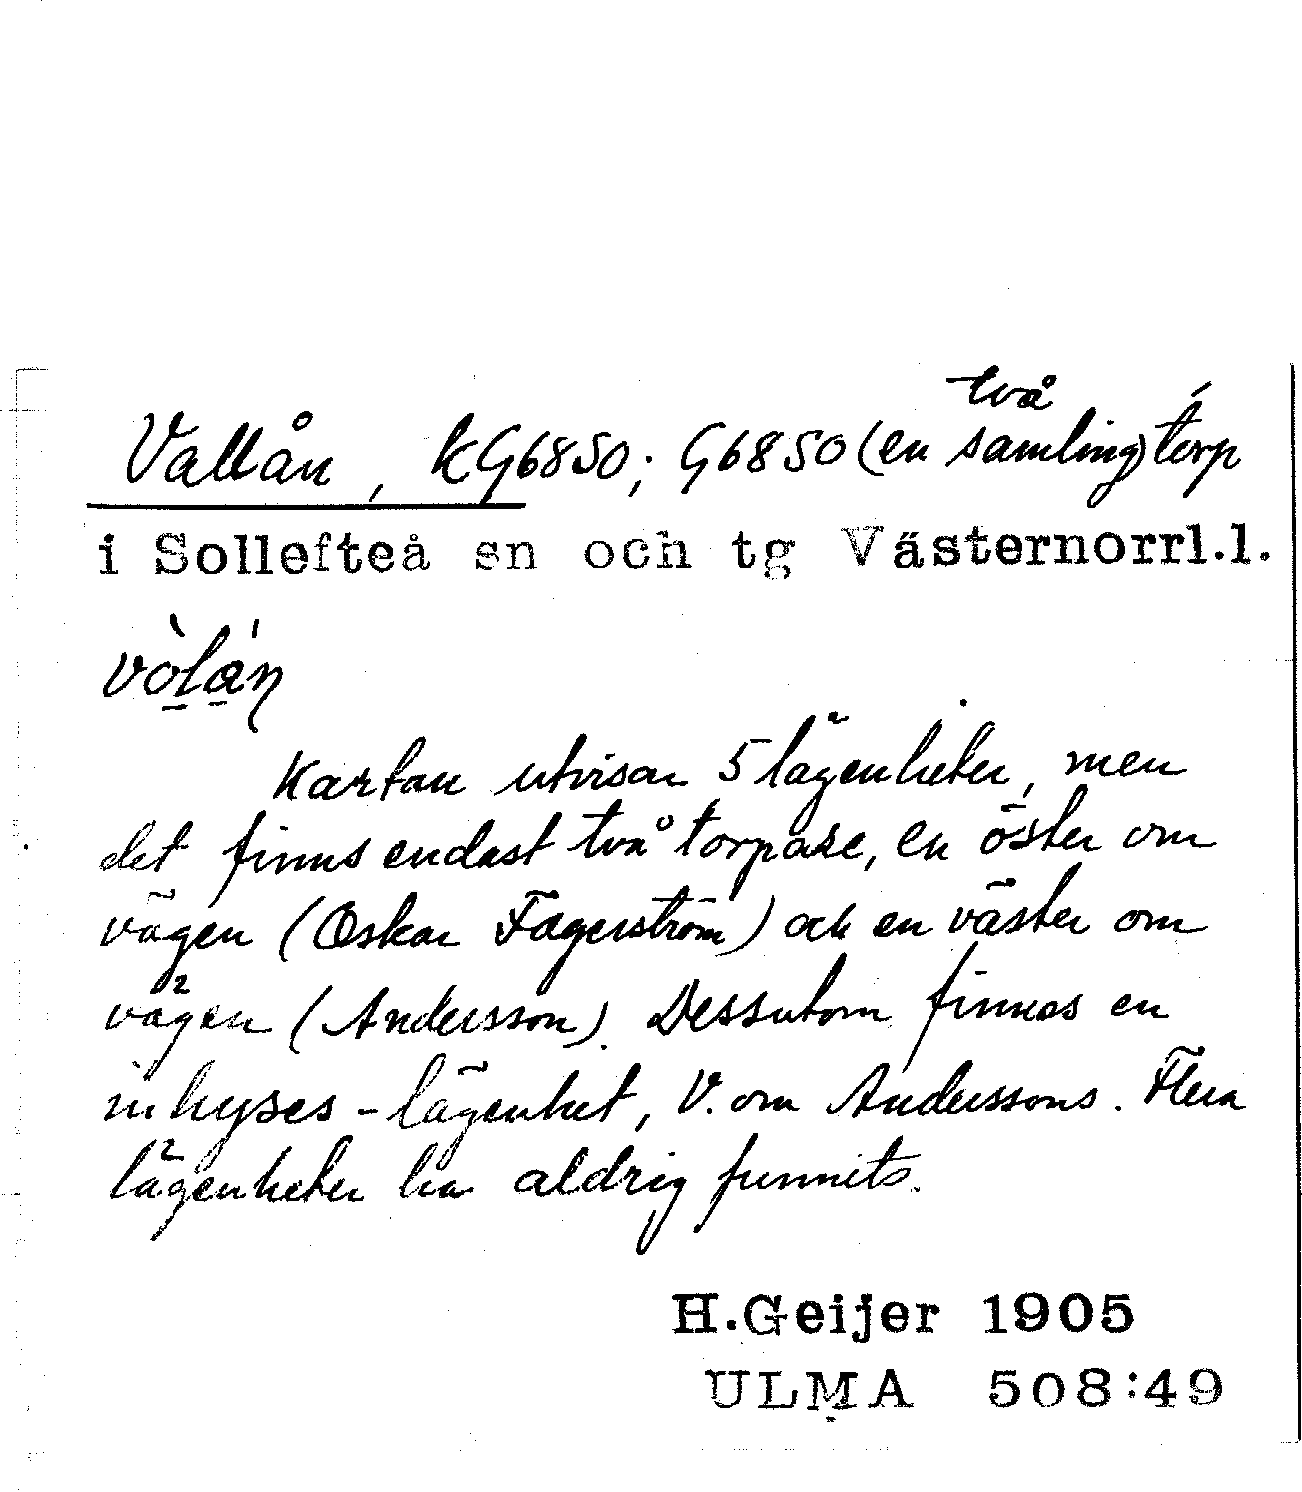 två
Vallån, KG6850; G6850 (en samling) torp
i Sollefteå sn och tg Västernorrl.l.
vòlán
Kartan utvisar 5 lägenheter, men
det finns endast två torpare, en öster om
vägen (Oskar Fagerström) och en väster om
vägen (Andersson). Dessutom finnes en
inhyses-lägenhet, V. om Anderssons. Flera
lägenheter ha aldrig funnits.
H.Geijer 1905
ULMA 508:49